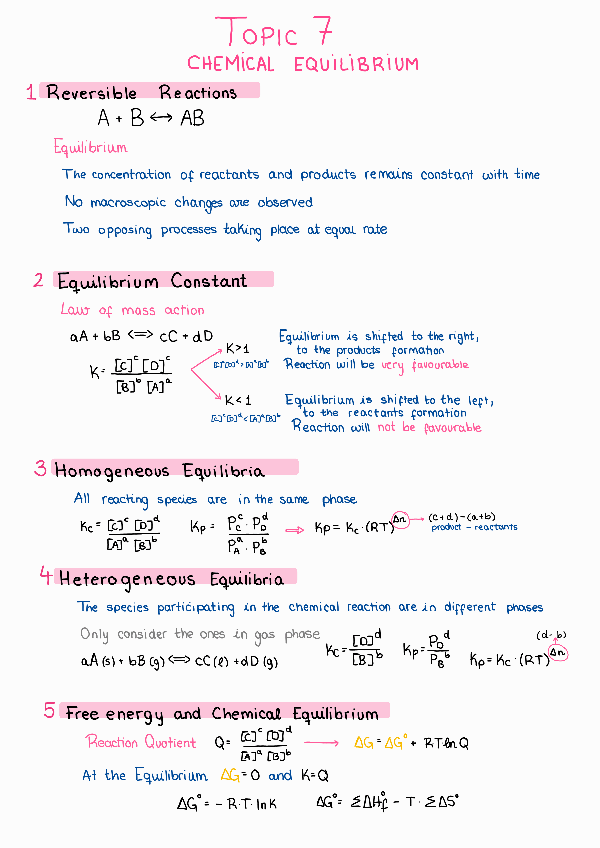 TOPIC 7
CHEMICAL EQUILIBRIUM
1 Reversible Reactions
A + B ↔ AB
Equilibrium
The concentration of reactants and products remains constant with time
No macroscopic changes are observed
Two opposing processes taking place at equal rate
2 Equilibrium Constant
Law of mass action
aA + bB <=> cC + dD
K = [C]ᶜ [D]ᶜ / [B]ᵇ [A]ᵃ
K>1
[C]ᶜ[D]ᵈ > [A]ᵃ[B]ᵇ
Equilibrium is shifted to the right,
to the products formation
Reaction will be very favourable
K<1
[C]ᶜ[D]ᵈ < [A]ᵃ[B]ᵇ
Equilibrium is shifted to the left,
to the reactants formation
Reaction will not be favourable
3 Homogeneous Equilibria
All reacting species are in the same phase
Kc = [C]ᶜ [D]ᵈ / [A]ᵃ [B]ᵇ Kp = P_C^c · P_D^d / P_A^a · P_B^b ⇒ Kp = Kc·(RT)^Δn → (c+d)-(a+b)
product - reactants
4 Heterogeneous Equilibria
The species participating in the chemical reaction are in different phases
Only consider the ones in gas phase
aA(s) + bB(g) <=> cC(l) + dD(g)
Kc = [D]ᵈ / [B]ᵇ Kp = P_D^d / P_B^b Kp = Kc·(RT)^Δn (d-b)
5 Free energy and Chemical Equilibrium
Reaction Quotient Q = [C]ᶜ [D]ᵈ / [A]ᵃ [B]ᵇ → ΔG = ΔG° + RTlnQ
At the Equilibrium ΔG = 0 and K=Q
ΔG° = - R·T·lnK ΔG° = ΣΔH°f - T · ΣΔS°